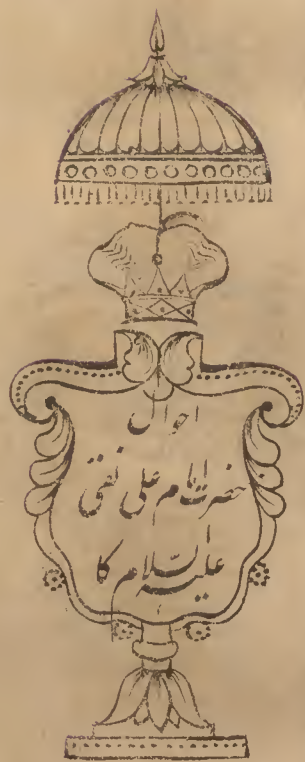 احوال
حضرت امام علی نقی
علیہ السلام کا